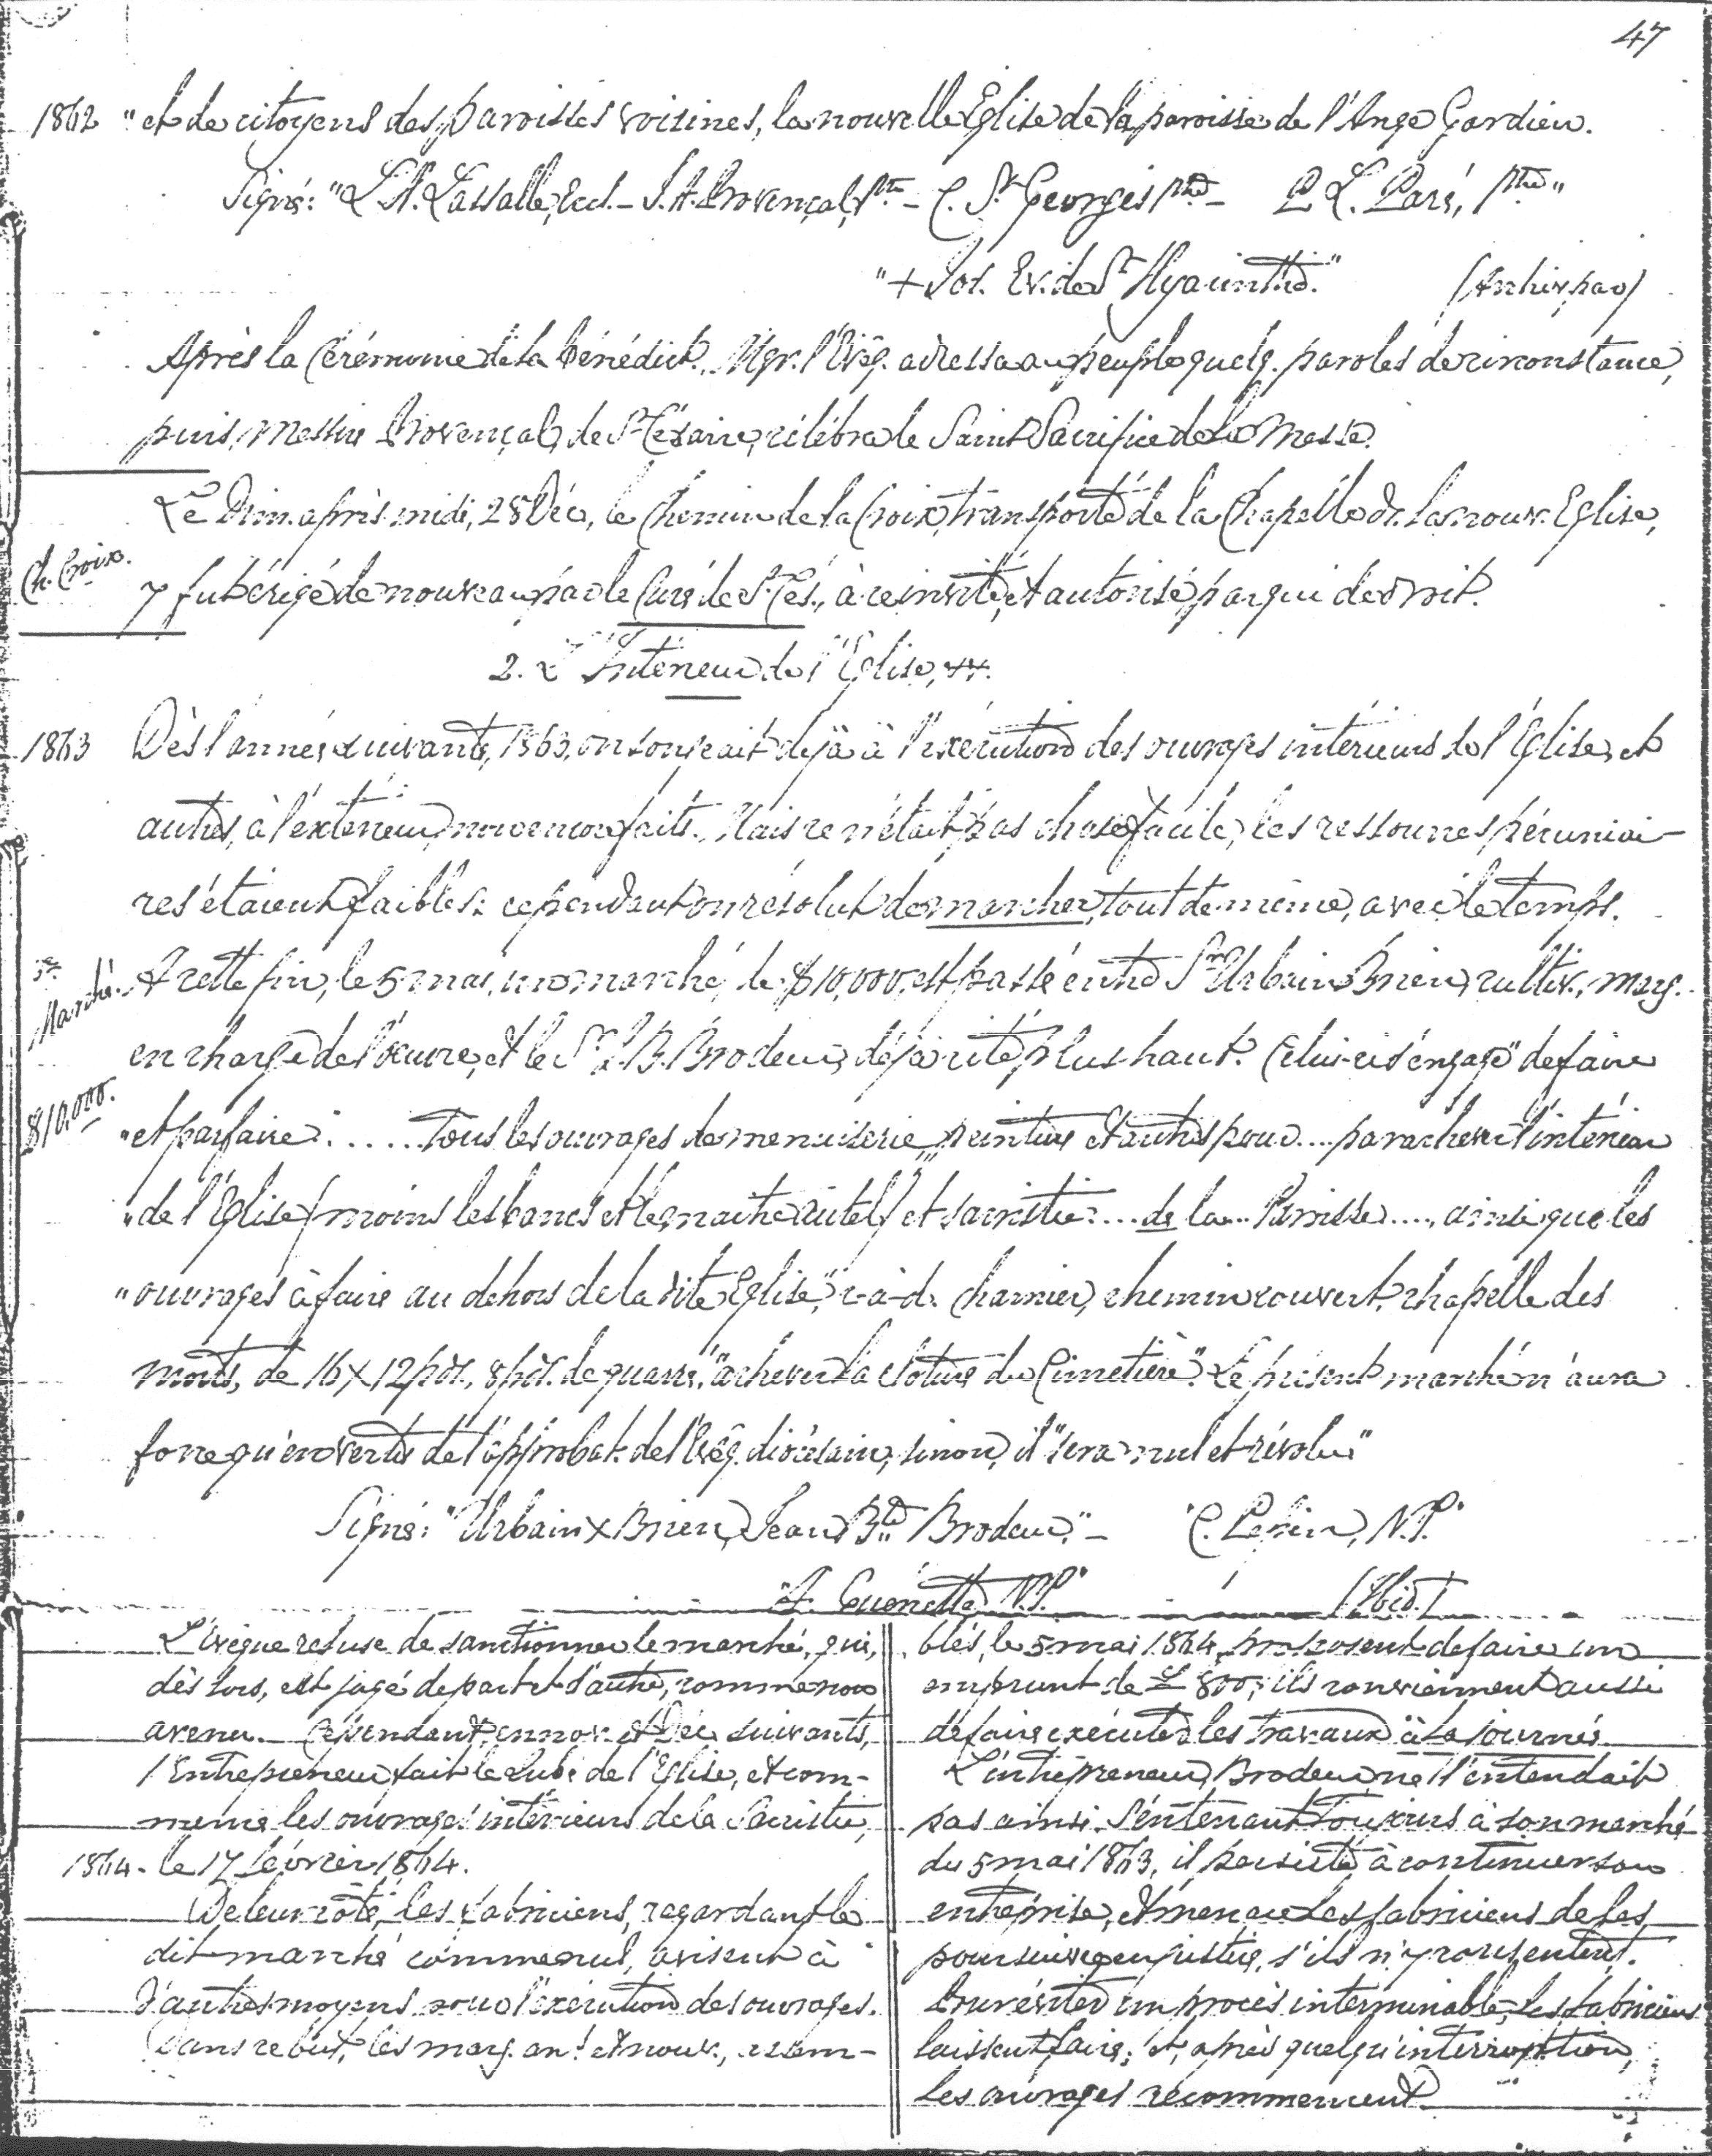 47
1862 "et de citoyens des paroisses voisines, la nouvelle Eglise de la paroisse de l'Ange Gardien.
Signé: "L. A. Lassalle, Eccl. – J. A. Provençal, Ptre – C. St Georges Ptre – P. L. Paré, Ptre"
"+ Jos. Ev. de St Hyacinthe." (Archiv. par)
Après la Cérémonie de la bénédict., Mgr. l'Evêq. adressa au peuple quelq. paroles de circonstance,
puis, Messire Provençal, de St Césaire, célébra le Saint Sacrifice de la Messe.
Le Dim. après-midi, 28 Déc, le Chemin de la Croix, transporté de la Chapelle ds. la nouv. Eglise,
Ch. Croix.
y fut érigé de nouveau par le Curé de St Cés., à ce invité, et autorisé par qui de droit.
2. L'Intérieur de l'Eglise, &.
1863 Dès l'année suivante, 1863, on songeait déjà à l'exécution des ouvrages intérieurs de l'Eglise, et
autres, à l'extérieur, non encore faits. Mais ce n'était pas chose facile, les ressources pécuniai-
res étaient faibles: cependant on résolut de marcher, tout de même, avec le temps.
Marché. A cette fin, le 5 mai, un marché, de $10,000, est passé entre Sr Urbain Brien, cultiv., marg.
en charge de l'œuvre, et le Sr J. B. Brodeur, déjà cité plus haut. Celui-ci s'engage "de faire
$10,000.
"et parfaire..... tous les ouvrages de menuiserie, peinture et autres pour.... parachever l'intérieur
"de l'Eglise (moins les bancs et le maitre autel) et sacristie.... de la... Paroisse...., ainsi que les
"ouvrages à faire au dehors de la dite Eglise", c-à-d. charnier, chemin couvert, chapelle des
morts, de 16 x 12 pds., 8 pds. de quarré, "achever la cloture du Cimetière". Le présent marché n'aura
force qu'en vertu de l'approbat. de l'Evêq. diocésain, sinon, il "sera nul et résolu"
Signé: "Urbain x Brien, Jean Bte Brodeur," – "C. Pepin, N.P."
"A. Guenette N.P." (Ibid.)
L'évêque refuse de sanctionner le marché, qui,
dès lors, est jugé de part et d'autre, comme non
avenu. Cependant, en nov. et Déc suivants,
l'Entrepreneur fait le Jubé de l'Eglise, et com-
mence les ouvrages intérieurs de la Sacristie,
1864. le 17 février 1864.
De leur côté, les fabriciens, regardant le
dit marché comme nul, avisent à
d'autres moyens pour l'exécution des ouvrages.
Dans ce but, les marg. anc. et nouv., assem-
blés, le 5 mai 1864, proposent de faire un
emprunt de £ 800; ils conviennent aussi
de faire exécuter les travaux à la journée.
L'entrepreneur, Brodeur, ne l'entendait
pas ainsi. S'en tenant toujours à son marché
du 5 mai 1863, il persiste à continuer son
entreprise, et menace les fabriciens de les
poursuivre en justice, s'ils n'y consentent.
Pour éviter un procès interminable, les fabriciens
laissent faire; et, après quelqu'interruption,
les ouvrages recommencent.